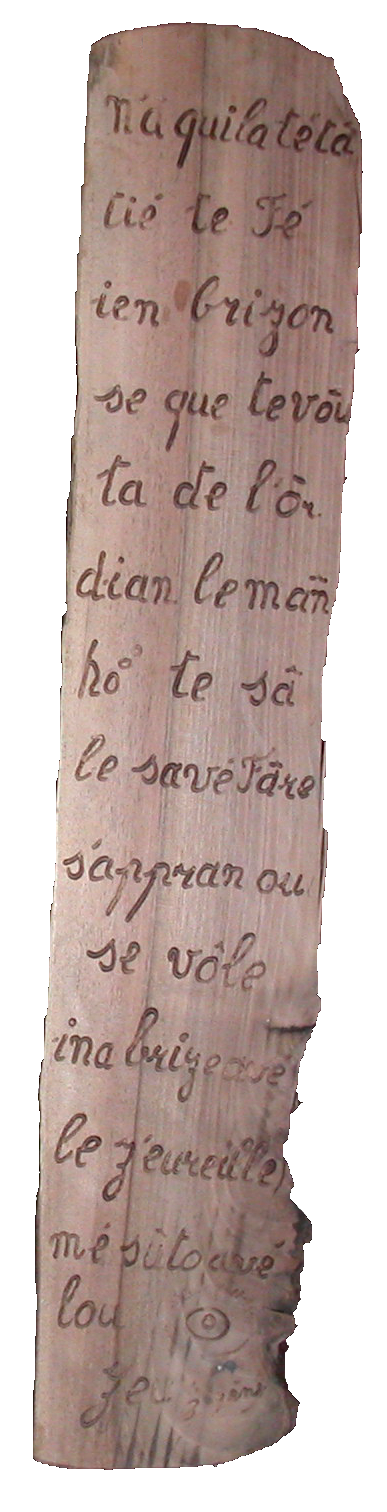 n'a quilatétâ
tié te Fé
ien brizon
se que tevôu
ta de l'ôr
dian lemañ
hô te sâ
le savéFâre
s'appran ou
se vôle
ina brizeavé
le z'eureille
mé sùtoavé
lou
zeu